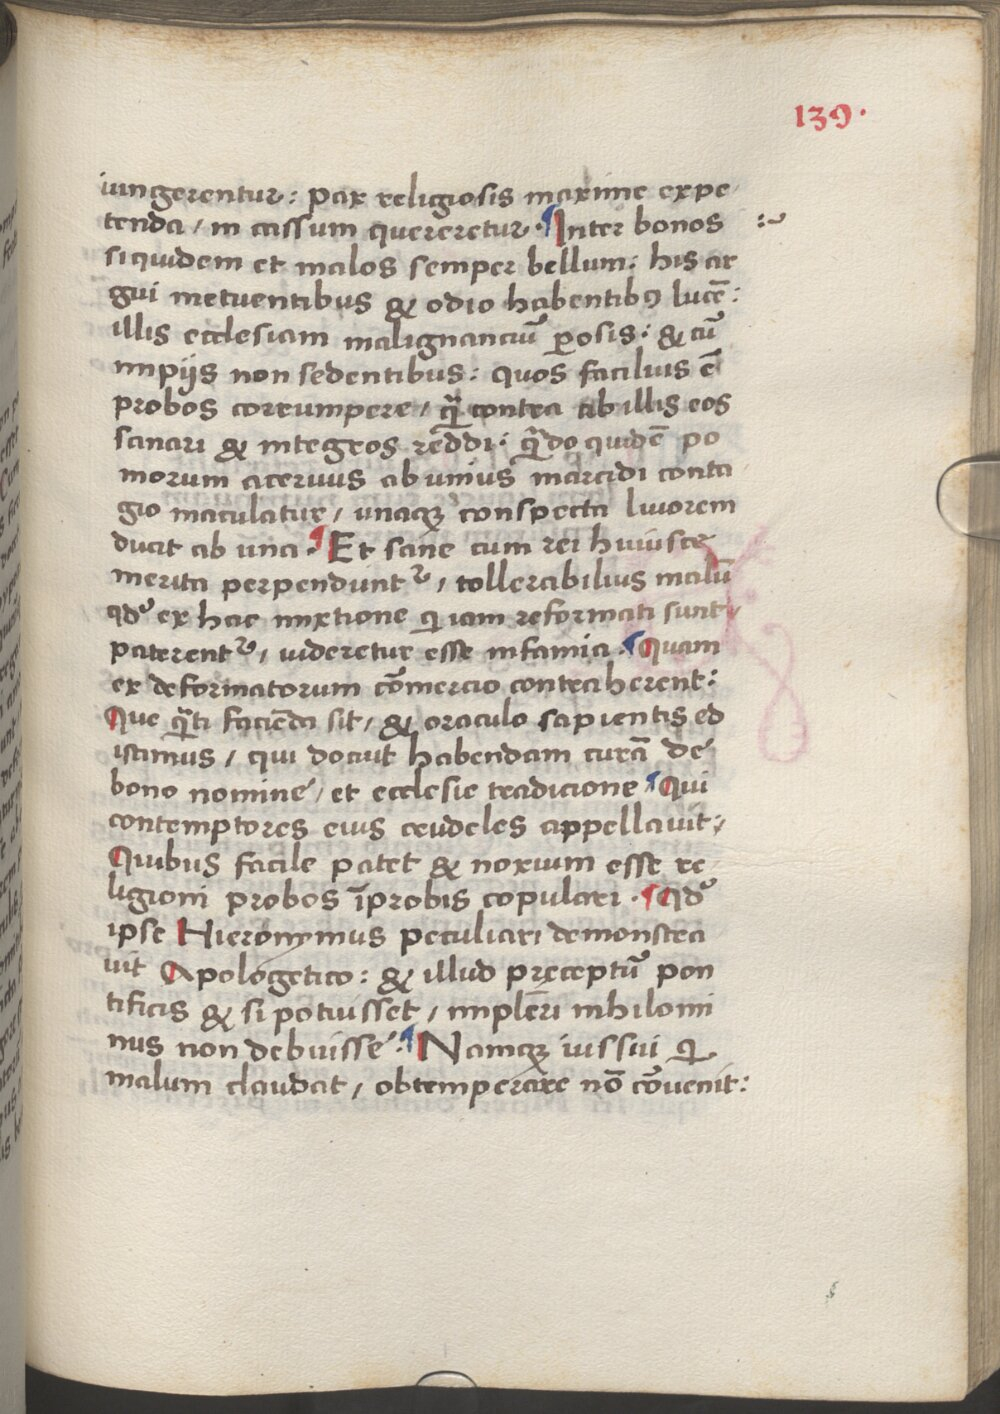 139.
iungerentur: pax religiosis maxime expe
tenda / in cassum quereretur. ¶ Inter bonos :~
siquidem et malos semper bellum: his ar
gui metuentibus & odio habentibꝰ lucē:
illis ecclesiam malignanciū ꝑosis: & cū
impijs non sedentibus: quos facilius ē
probos corrumpere / qͣ̄ contra ab illis eos
sanari & integros reddi: qͣ̄do quidē po
morum aceruus ab unius marcidi conta
gio maculatur / unaqꝫ conspecta liuorem
ducit ab una. ¶ Et sane cum rei huiusce
merita perpenduntᷣ / tollerabilius malū
qdᷣ ex hac mixtione qi iam reformati sunt /
paterentᷣ / uideretur esse infamia. ¶ Quam
ex deformatorum cōmercio contraherent:
Que qͣ̄ti faciēda sit / & oraculo sapientis ed
iscimus / qui docuit habendam curā de
bono nomine / et ecclesie tradicione ¶ Qui
contemptores eius crudeles appellauit:
Quibus facile patet & noxium esse re
ligioni probos īprobis copulari. ¶ Qdᷣ
ipse Hieronymus peculiari demonstra
uit Apologetico: & illud preceptū pon
tificis & si potuisset / impleri nihilomi
nus non debuisse. ¶ Namqꝫ iussui qi
malum claudat / obtemperare nō cōuenit: